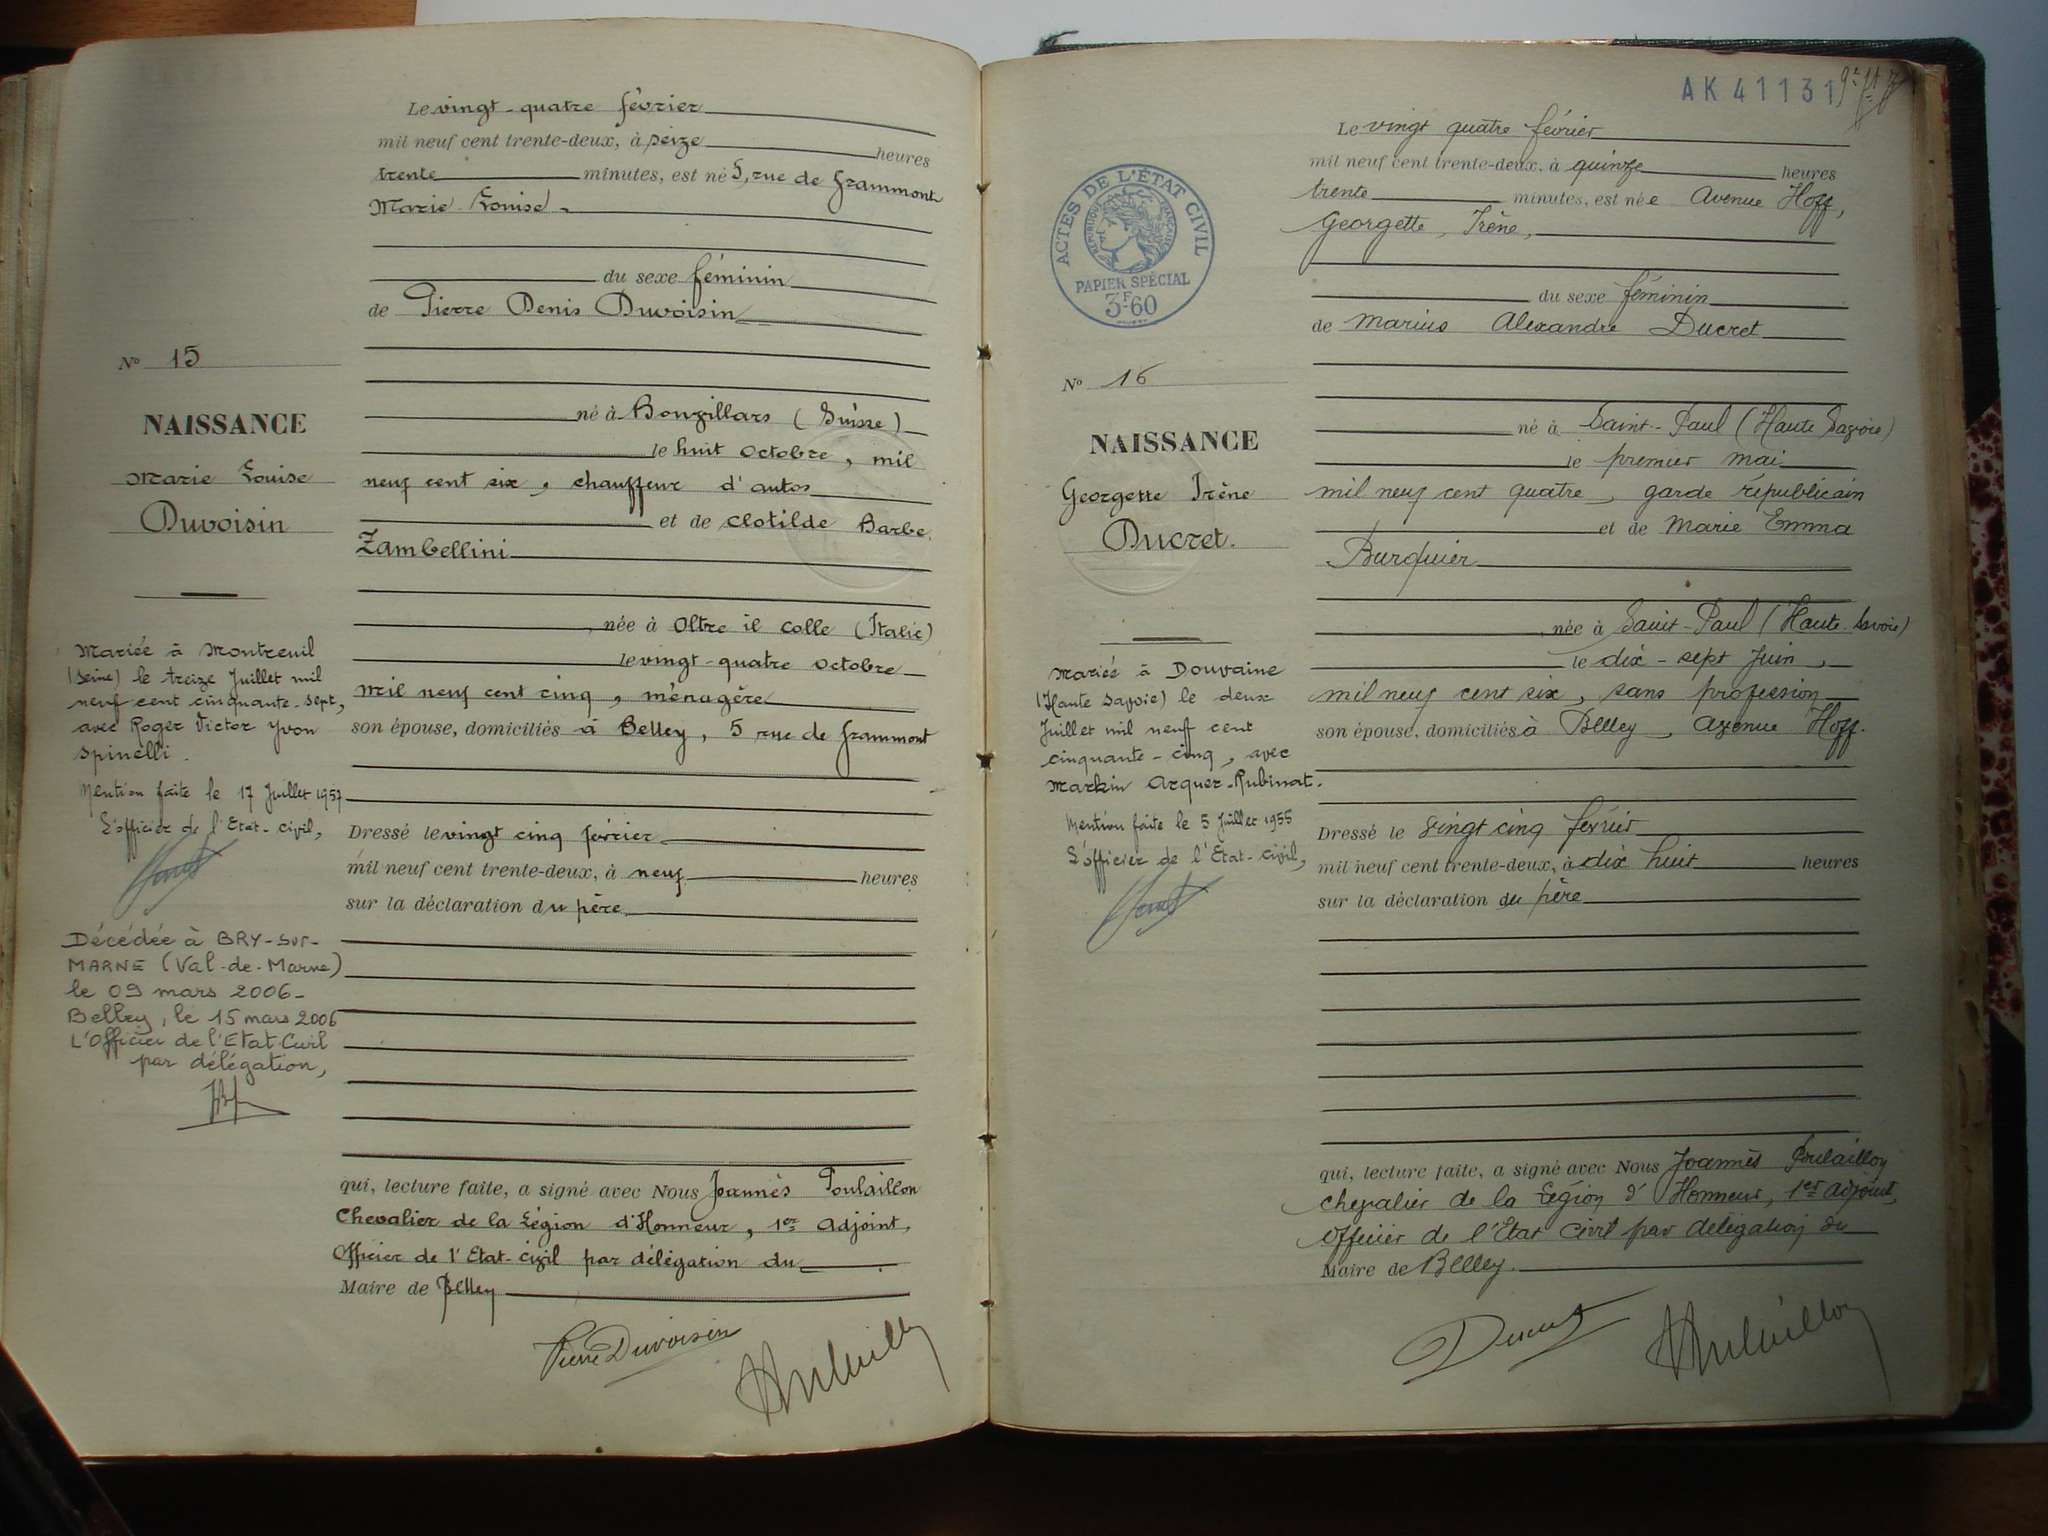 Le vingt-quatre février
mil neuf cent trente-deux, à seize heures
trente minutes, est né 5, rue de Grammont
Marie Louise,
du sexe féminin
de Pierre Denis Duvoisin
né à Bonvillars (Suisse)
le huit Octobre, mil
neuf cent six, chauffeur d'autos
et de Clotilde Barbe
Zambellini
née à Oltre il colle (Italie)
le vingt-quatre Octobre
mil neuf cent cinq, ménagère
son épouse, domiciliés à Belley, 5 rue de Grammont
Dressé le vingt cinq février
mil neuf cent trente-deux, à neuf heures
sur la déclaration du père
qui, lecture faite, a signé avec Nous Joannès Poulaillon
Chevalier de la Légion d'Honneur, 1er Adjoint,
Officier de l'Etat-civil par délégation du
Maire de Belley
Pierre Duvoisin
N° 15
NAISSANCE
Marie Louise
Duvoisin
Mariée à Montreuil
(Seine) le treize Juillet mil
neuf cent cinquante-sept,
avec Roger Victor Yvon
Spinelli.
Mention faite le 17 Juillet 1957
L'officier de l'Etat-civil,
Décédée à BRY-sur-
MARNE (Val-de-Marne)
le 09 mars 2006-
Belley, le 15 mars 2006
L'Officier de l'Etat-Civil
par délégation,
AK 41131
ACTES DE L'ÉTAT CIVIL
RÉPUBLIQUE FRANÇAISE
PAPIER SPÉCIAL
3F60
Le vingt quatre février
mil neuf cent trente-deux, à quinze heures
trente minutes, est née Avenue Hoff,
Georgette, Irène,
du sexe féminin
de Marius Alexandre Ducret
né à Saint-Paul (Haute Savoie)
le premier mai
mil neuf cent quatre, garde républicain
et de Marie Emma
Burquier
née à Saint-Paul (Haute-Savoie)
le dix-sept Juin,
mil neuf cent six, sans profession
son épouse, domiciliés à Belley, avenue Hoff.
Dressé le vingt cinq février
mil neuf cent trente-deux, à dix huit heures
sur la déclaration du père
qui, lecture faite, a signé avec Nous Joannès Poulaillon
Chevalier de la Légion d'Honneur, 1er adjoint,
Officier de l'Etat Civil par délégation du
Maire de Belley.
Ducret
N° 16
NAISSANCE
Georgette Irène
Ducret.
Mariée à Douvaine
(Haute Savoie) le deux
Juillet mil neuf cent
cinquante-cinq, avec
Markin Arquer-Rubinat.
Mention faite le 5 Juillet 1955
L'officier de l'Etat-civil,